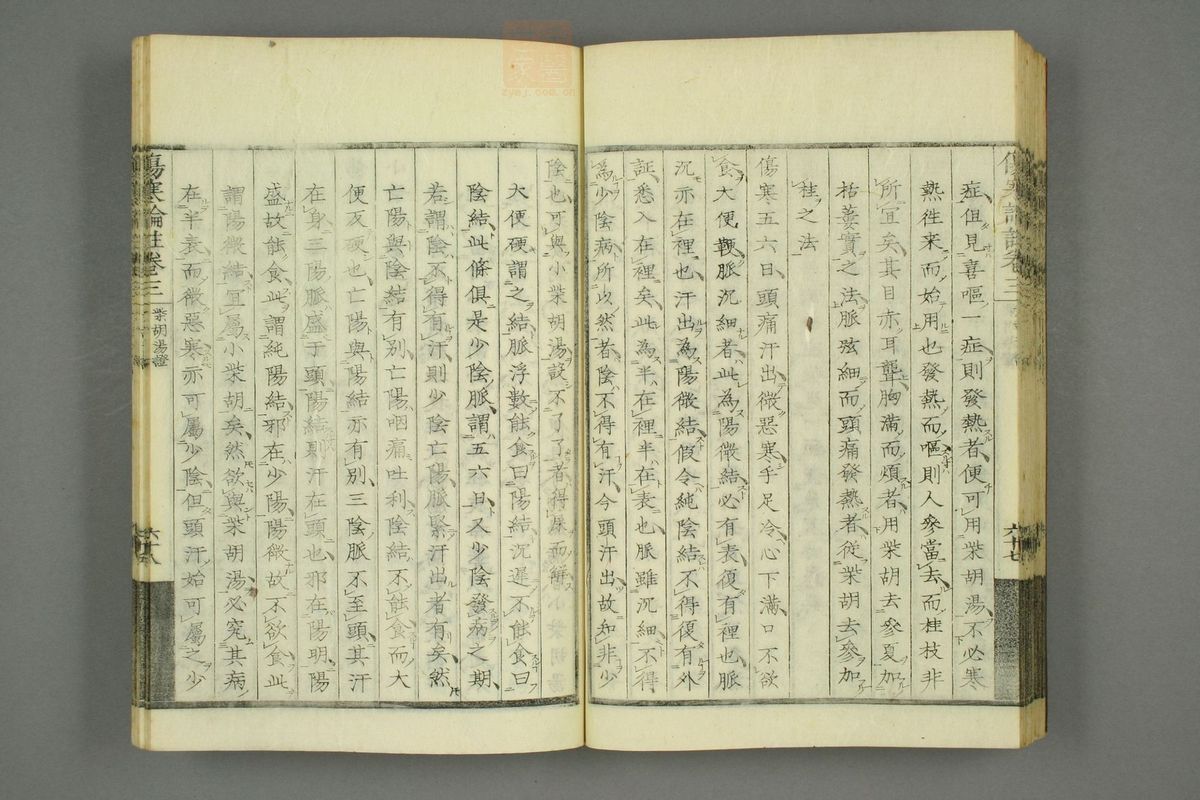 症但見喜嘔一症則發熱者便可用柴胡湯不必寒
熱徃来而始用也發熱而嘔則人參當去而桂枝非
所宜矣其目赤耳聾胸滿而煩者用柴胡去參夏加
栝蔞實之法脈弦細而頭痛發熱者從柴胡去參加
桂之法
傷寒五六日頭痛汗出微惡寒手足冷心下滿口不欲
食大便鞕脈沉細者此為陽微結必有表復有裡也脈
沉亦在裡也汗出為陽微結假令純陰結不得復有外
証悉入在裡矣此為半在裡半在表也脈雖沉細不得
為少陰病所以然者陰不得有汗今頭汗出故知非少
六十七
陰也可與小柴胡湯設不了了者得屎而解
大便硬謂之結脈浮數能食曰陽結沉遲不能食曰
陰結此條俱是少陰脈謂五六日又少陰發病之期
若謂陰不得有汗則少陰亡陽脈緊汗出者有矣然
亡陽與陰結有別亡陽咽痛吐利陰結不能食而大
便反硬也亡陽與陽結亦有別三陰脈不至頭其汗
在身三陽脈盛于頭陽結則汗在頭也邪在陽明陽
盛故能食此謂純陽結邪在少陽陽微故不欲食此
謂陽微結宜屬小柴胡矣然欲與柴胡湯必究其病
在半表而微惡寒亦可屬少陰但頭汗始可屬之少
傷寒論註卷三
柴胡湯證
六十八